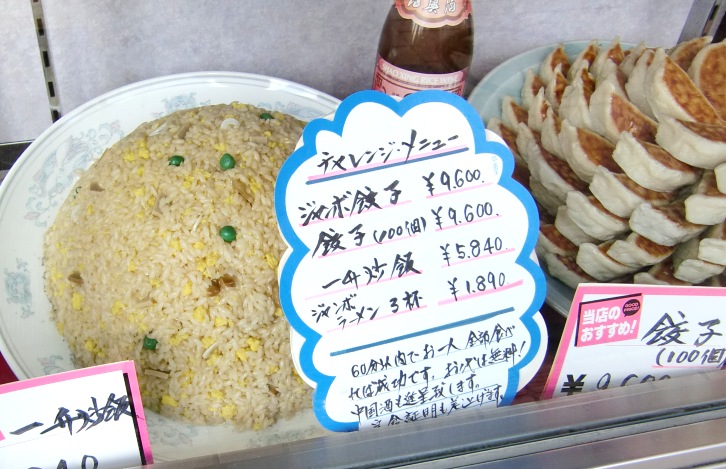 SHAO XING RICE WINE
チャレンジ・メニュー
ジャンボ餃子 ¥9.600.
餃子(100個) ¥9.600.
一升炒飯 ¥5.840.
ジャンボラーメン3杯 ¥1.890
60分以内でお一人 全部食べ
れば成功です。お代は無料!
中国酒も進呈致します。
完食証明も差上げます。
一升炒飯
当店の
おすすめ!
GOOD PRICE!
餃子
(100個)
¥9.600